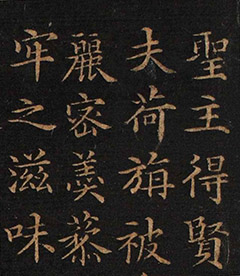 聖主得賢
夫荷旃被
麗密羹藜
牢之滋味